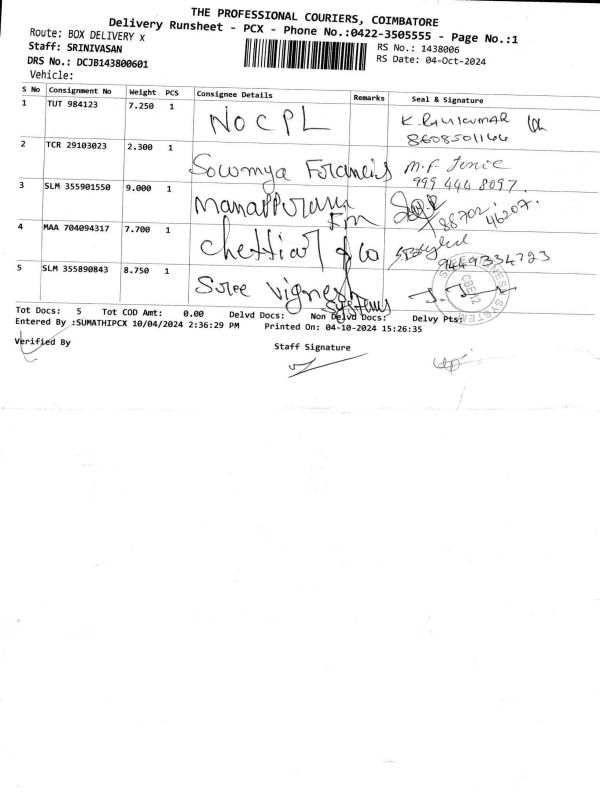 THE PROFESSIONAL COURIERS, COIMBATORE
Delivery Runsheet - PCX - Phone No.:0422-3505555 - Page No.:1
Route: BOX DELIVERY X
RS No.: 1438006
Staff: SRINIVASAN
RS Date: 04-Oct-2024
DRS No.: DCJB143800601
Vehicle:
S No Consignment No Weight PCS Consignee Details Remarks Seal & Signature
1 TUT 984123 7.250 1 NOCPL K. RAVIKUMAR
8608501166
2 TCR 29103023 2.300 1 Sowmya Francis M.F
999 444 8097.
3 SLM 355901550 9.000 1 Manappuram
88702 46207.
4 MAA 704094317 7.700 1 Chettiar & Co
9449334723
5 SLM 355890843 8.750 1 Sree Vignesh
Systems
Tot Docs: 5 Tot COD Amt: 0.00 Delvd Docs: Non Delvd Docs: Delvy Pts:
Entered By :SUMATHIPCX 10/04/2024 2:36:29 PM Printed On: 04-10-2024 15:26:35
Verified By
Staff Signature